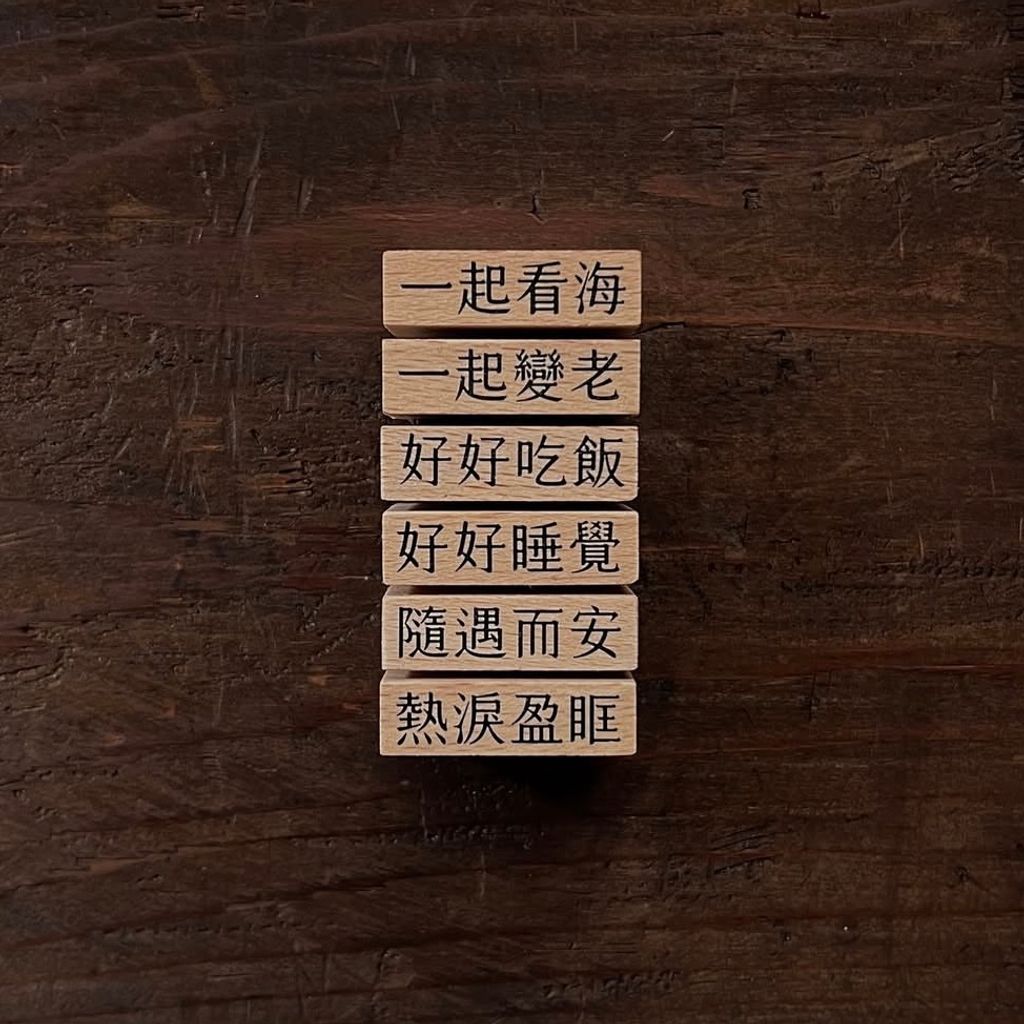 一起看海
一起變老
好好吃飯
好好睡覺
隨遇而安
熱淚盈眶